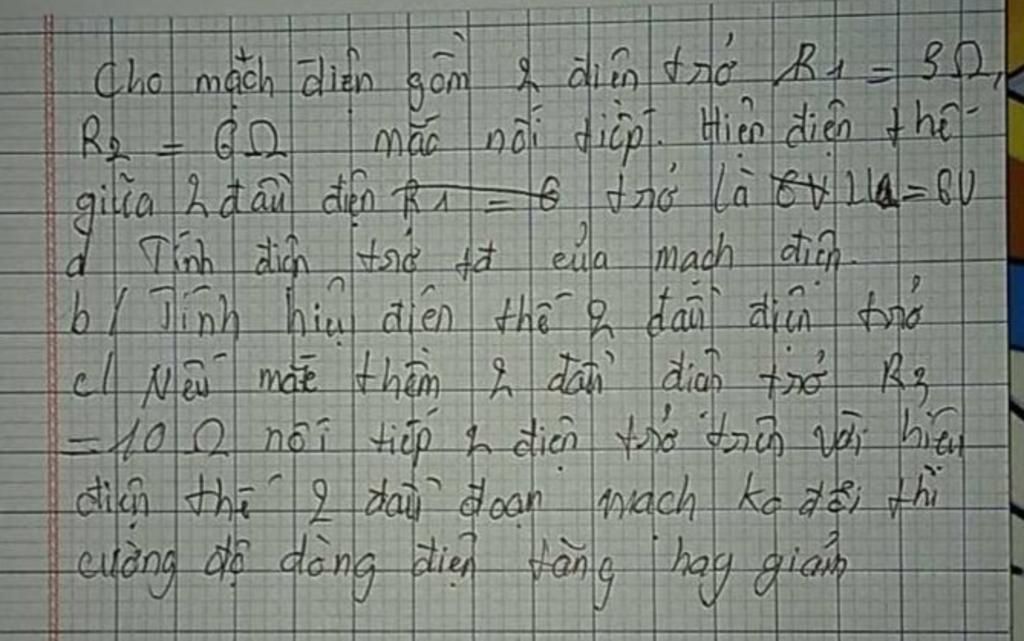 Cho mạch điện gồm 2 điện trở R1 = 3Ω,
R2 = 6Ω mắc nối tiếp. Hiệu điện thế
giữa 2 đầu điện R1 = 6 trở là 6V = 6V
a Tính điện trở tđ của mạch điện.
b/ Tính hiệu điện thế 2 đầu điện trở
c/ Nếu mắc thêm 2 đầu điện trở R3
=10Ω nối tiếp 2 điện trở trên với hiệu
điện thế 2 đầu đoạn mạch ko đổi thì
cường độ dòng điện tăng hay giảm